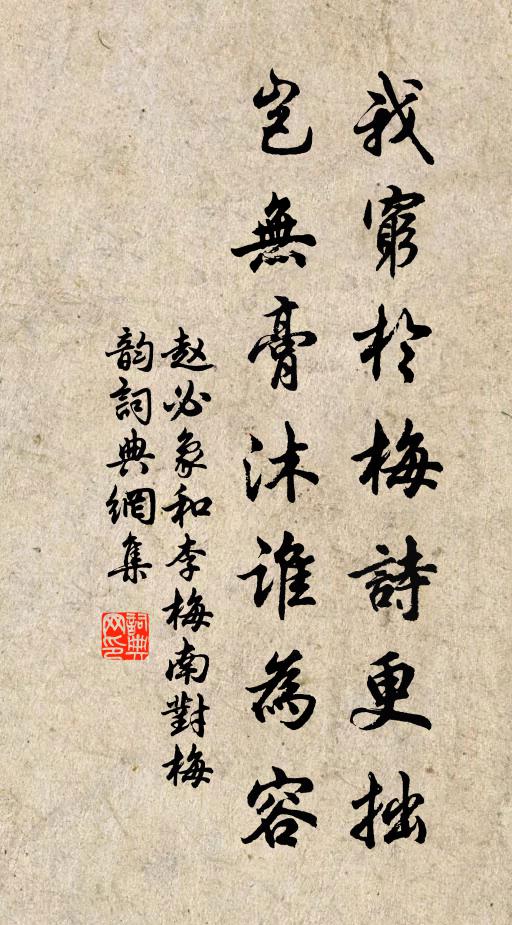 我窮於梅詩更拙
豈無膏沐誰為容
赵必象和李梅南對梅
韵詞典網集
詞典网印